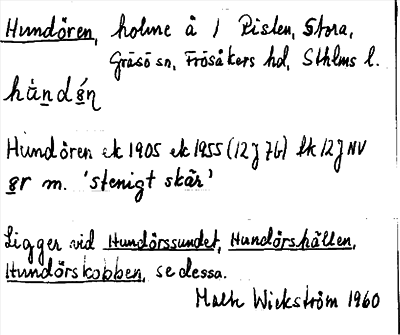 Hundören, holme å 1 Pisten, Stora,
Gräsö sn, Frösåkers hd, Sthlms l.
hùndǿn̥
Hundören ek 1905 ek 1955 (12J 7b) lk 12J NV
ör m. 'stenigt skär'
Ligger vid Hundörssundet, Hundörshällen,
Hundörskobben, se dessa.
Math Wickström 1960